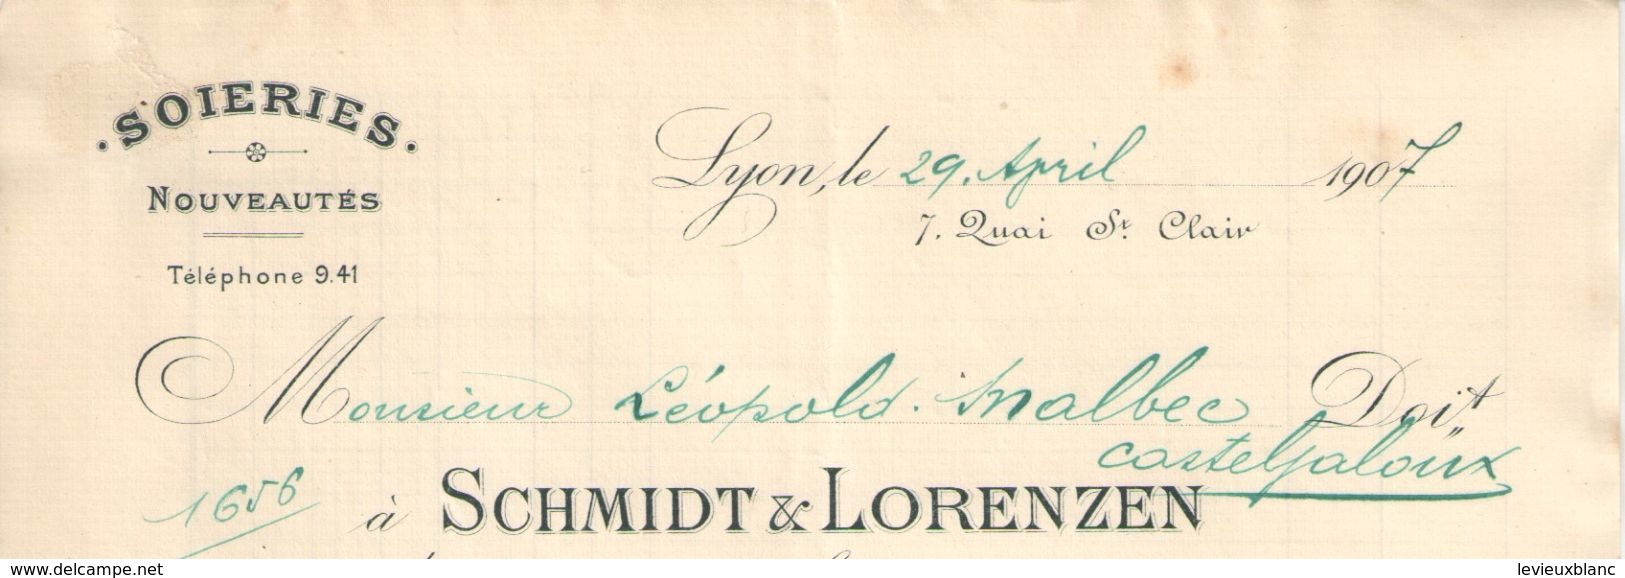 SOIERIES.
NOUVEAUTÉS
Téléphone 9.41
Lyon, le 29. April 1907
7. Quai St. Clair
Monsieur Léopold Malbec Doit
Casteljaloux
1656
à SCHMIDT & LORENZEN
www.delcampe.net
levieuxblanc